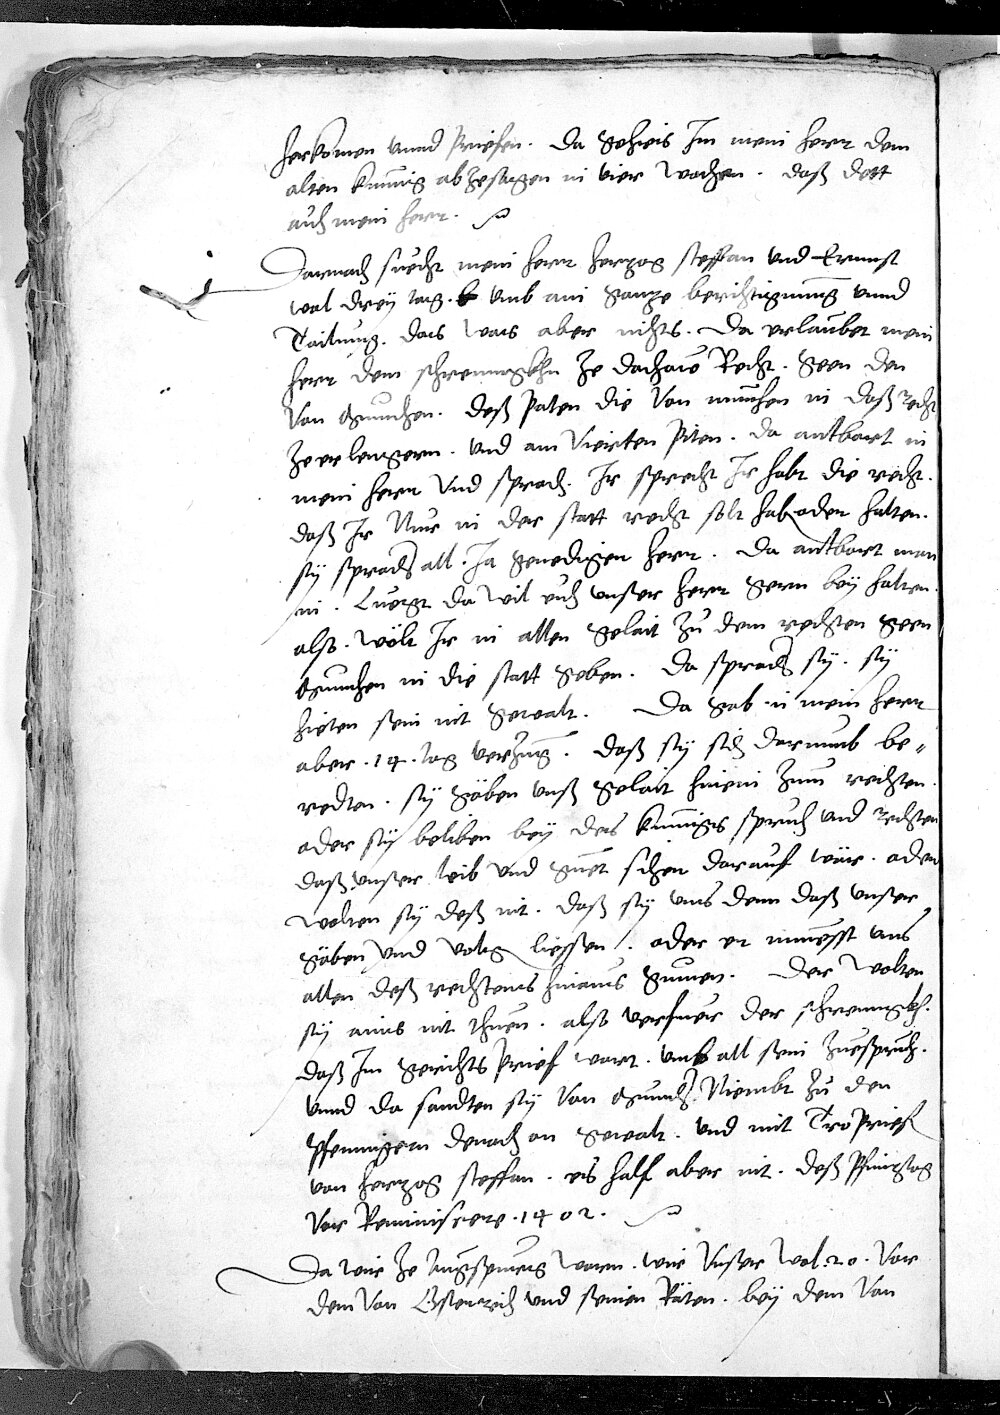 herkomen unnd Priefen. Da gehies Im mein herr dem
alten Kunnig ab zesagen in vier wochen. daß dett
auch mein herr.
Darnach suecht mein herr herzog Steffan und Ernnst
wol drey tag. umb ain ganze berichtigunng unnd
Tailung. das was aber nichts. Da erlaubet mein
herr dem schrennngkhn ze dachaw Recht. geen den
von Munchen. deß Paten die von munchen in daß recht
ze erlengern. und am vierten Piten. da antbort in
mein herr und sprach. Ir sprecht Ir habt die recht.
daß Ir Nur in der statt recht solt hab oder halten.
sy sprachen all. Ja genediger herr. Da antbort man
in. Luegt da wil euch unser herr gern bey halten.
also. wölt Ir in allen gelait zu dem rechten geen
Munchen in die statt geben. Da sprachen sy. sy
hieten sein nit gewalt. Da gab in mein herr
aber .14. tag verzug. daß sy sich darumb be=
redten. sy gäben unß gelait hinein zum rechten.
oder sy beliben bey des Kunnigs spruch und rechten
daß unser leib und guet sicher darauf wär. oder
wolten sy deß nit. daß sy uns denn daß unser
gäben und volig liessen. oder er muesst uns
allen deß rechtens hinaus gunnen. Der wolten
sy ains nit thuen. also verfuer der schrenngkh.
daß Im gerichts Prief wart. umb all sein zuespruch.
unnd da sandten sy von Munchen Niembt zu den
Pfenningern dennoch on gewalt. und mit Tro Prief
von herzog Steffan. es half aber nit. deß Pfintztag
vor Reminiscere .1402.
Da wir ze Augspurg warn. wir unser wol .20. vor
dem von Österreich und seinen Räten. bey dem von